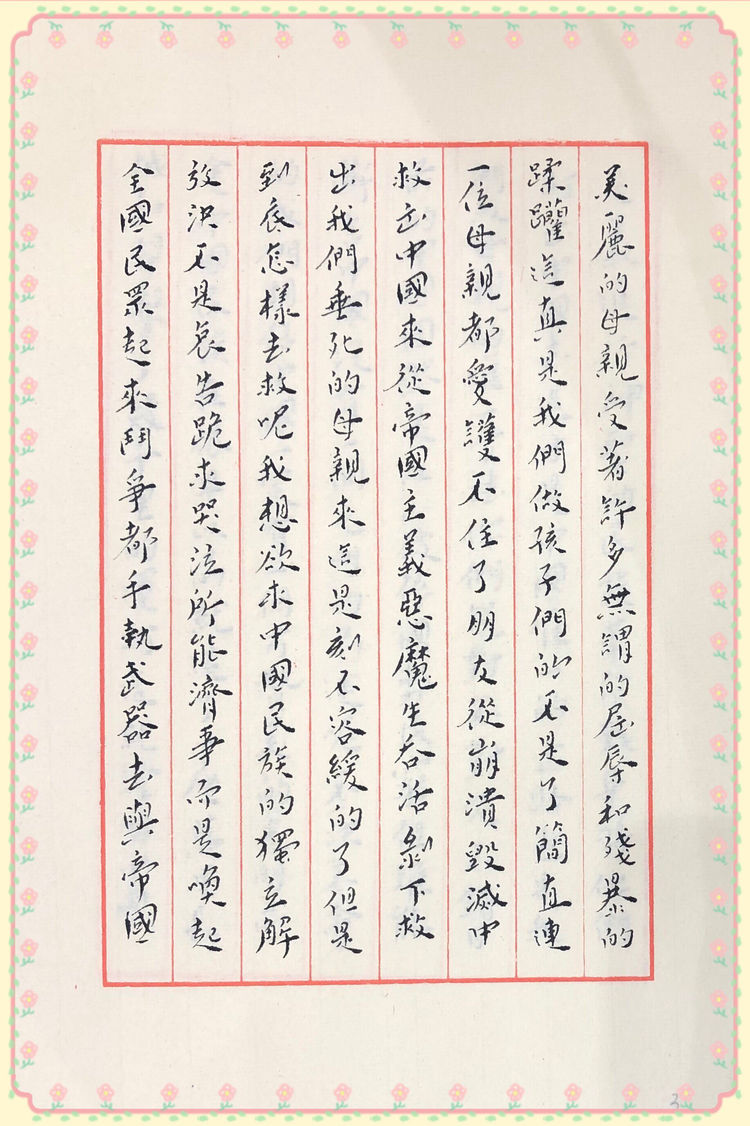 美麗的母親受著許多無謂的屈辱和殘暴的
蹂躪這真是我們做孩子們的不是了簡直連
一位母親都愛護不住了朋友從崩潰毀滅中
救出中國來從帝國主義惡魔生吞活剝下救
出我們垂死的母親來這是刻不容緩的了但是
到底怎樣去救呢我想欲求中國民族的獨立解
放決不是哀告跪求哭泣所能濟事而是喚起
全國民眾起來鬥爭都手執武器去與帝國
3